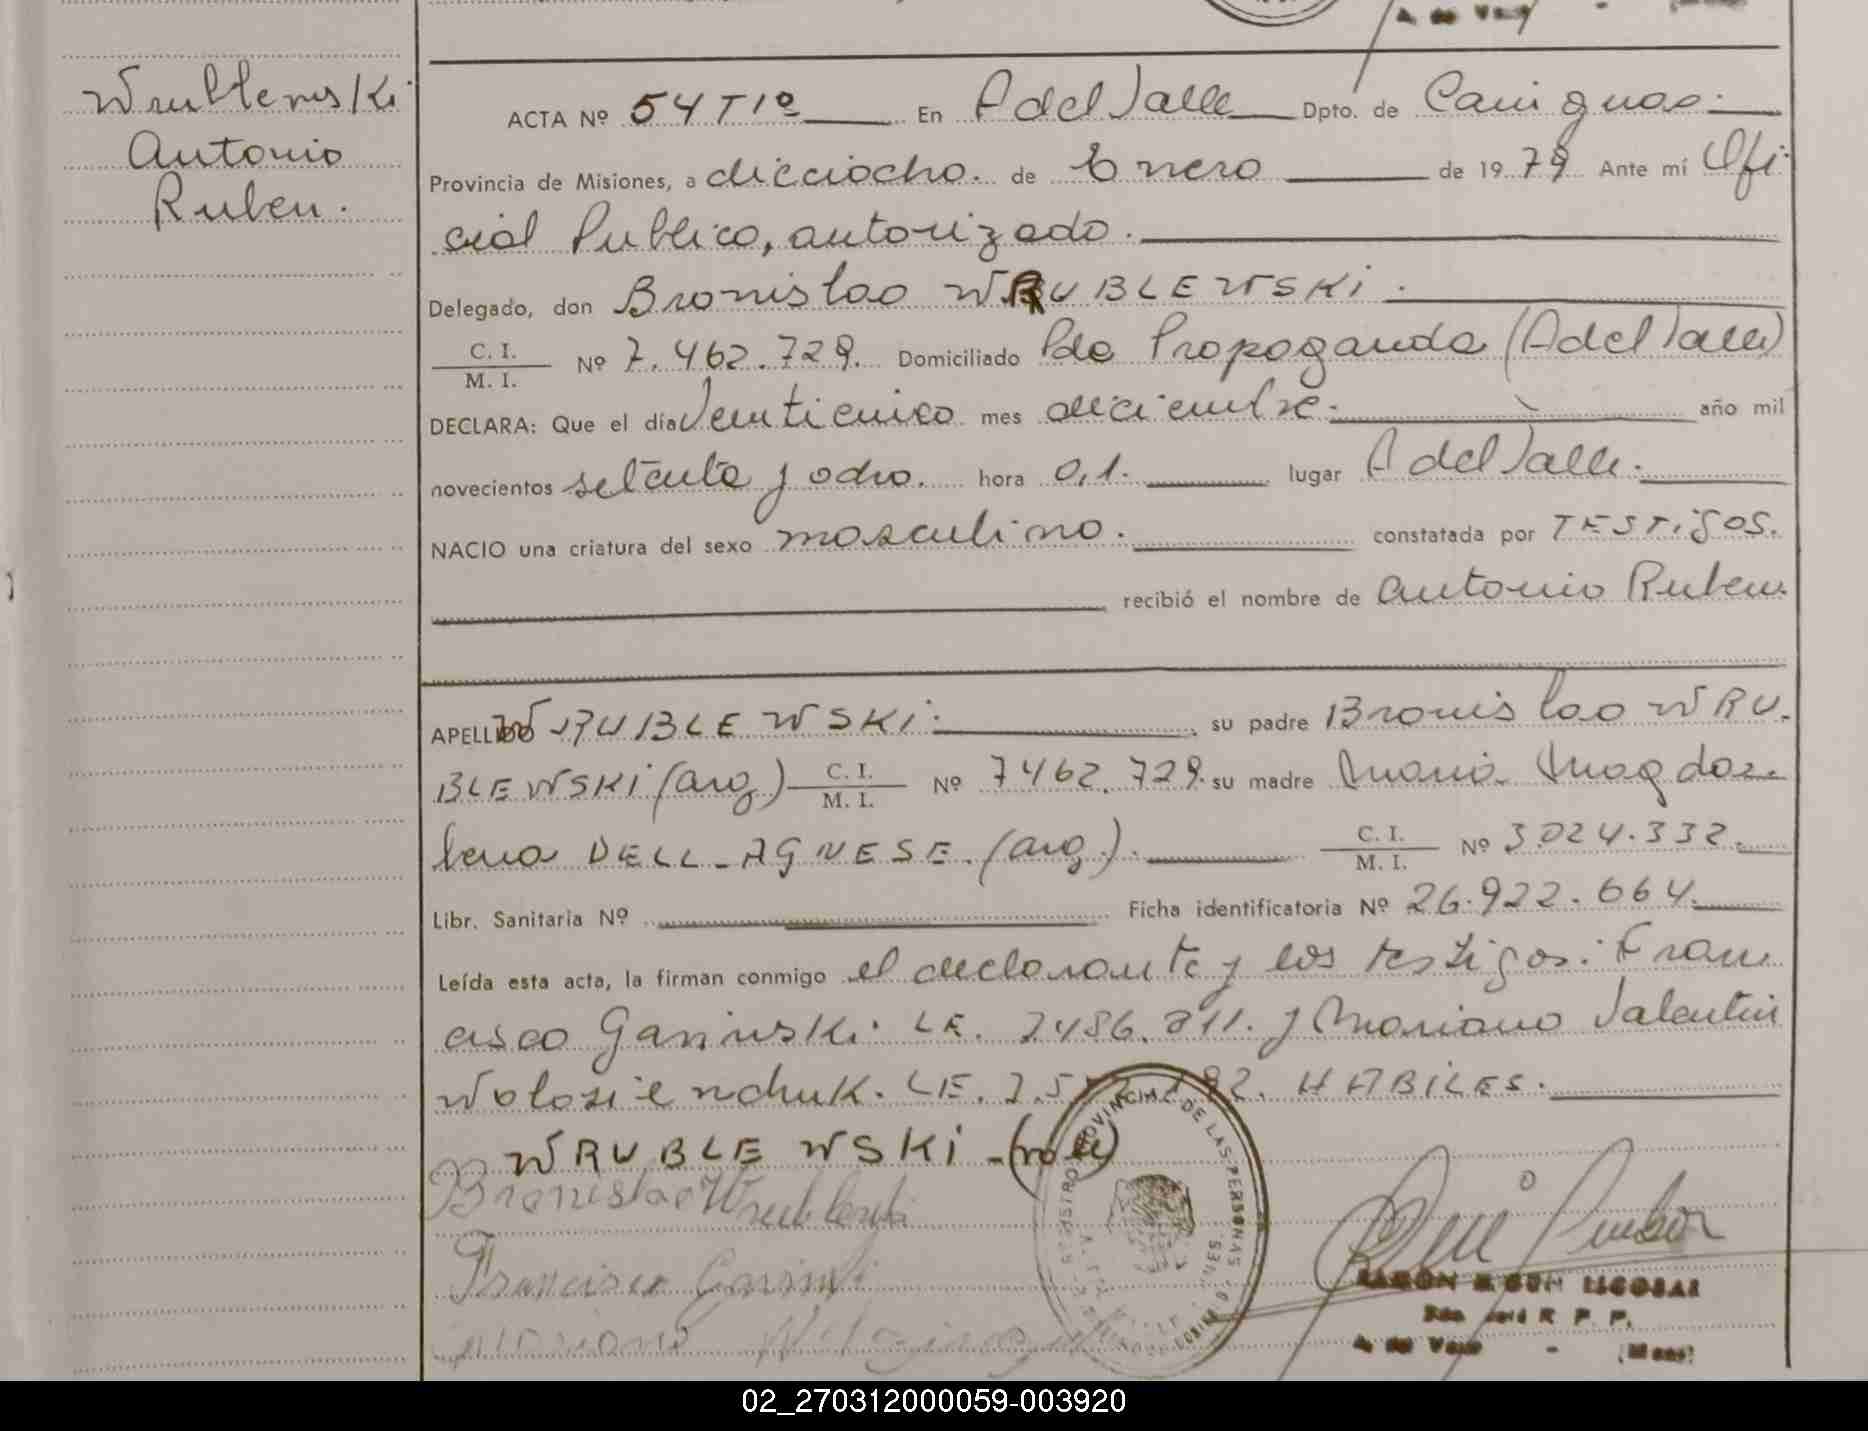 Wrublewski
Antonio
Ruben.
ACTA Nº 54 T1º En A del Valle Dpto. de Cainguas.
Provincia de Misiones, a dieciocho. de Enero de 1979 Ante mí Ofi-
cial Publico, autorizado.
Delegado, don Bronislao WRUBLEWSKi.
C. I. / M. I. Nº 7.462.729. Domiciliado Pdo Propaganda (A del Valle)
DECLARA: Que el día Veinticinco mes diciembre. año mil
novecientos setenta y ocho. hora 0,1. lugar A del Valle.
NACIO una criatura del sexo masculino. constatada por TESTigos.
recibió el nombre de Antonio Ruben.
APELLIDO WRUBLEWSKi. su padre Bronislao WRU-
BLEWSKi (arg) C. I. / M. I. Nº 7462.729. su madre Maria Magda-
lena DELL-AGNESE. (arg.). C. I. / M. I. Nº 3.024.332.
Libr. Sanitaria Nº Ficha identificatoria Nº 26.922.664.
Leída esta acta, la firman conmigo el declarante y los testigos: Fran
cisco Garinski. LE. 7486.811. y Mariano Valentin
Wolosienchuk. LE. HABiLES.
WRUBLEWSKi
Bronislao Wrublewski
Francisco Garinski
Mariano
PROVINCIAL DE LAS PERSONAS
RAMON ESCOBAR
R. P. P.
A. del Valle - (Mnes)
02_270312000059-003920